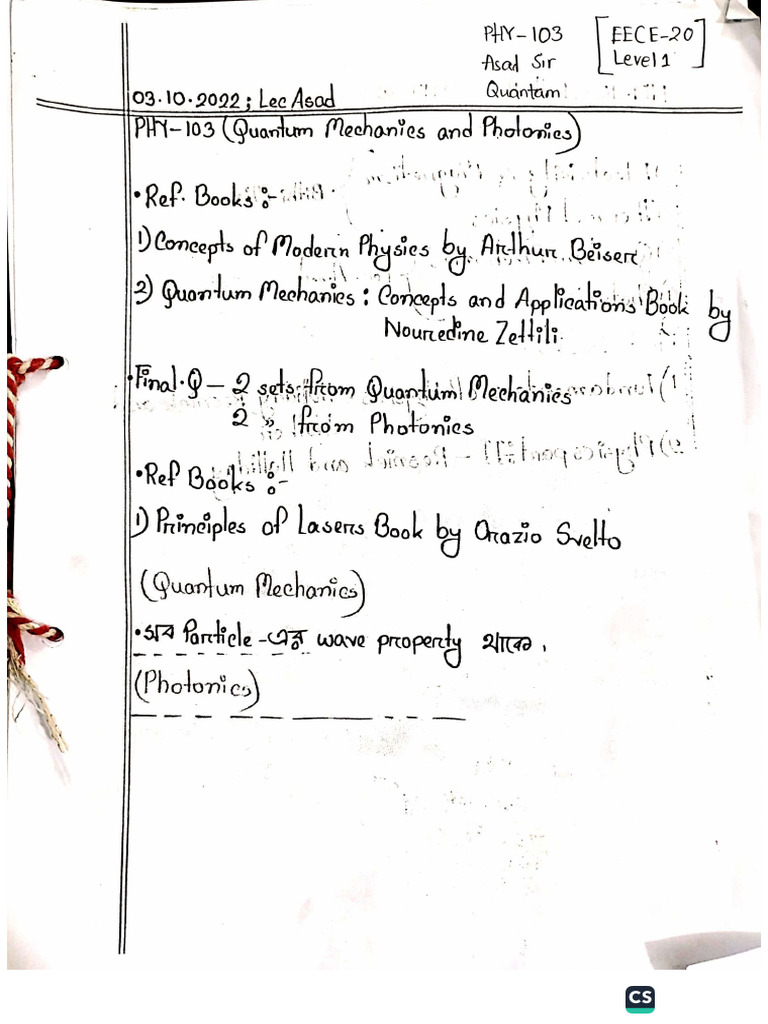 PHY-103 [EECE-20
Asad Sir Level 1]
Quantam
03.10.2022; Lec Asad
PHY-103 (Quantum Mechanics and Photonics)
• Ref. Books :-
1) Concepts of Modern Physics by Arthur Beiser
2) Quantum Mechanics : Concepts and Applications Book by
Nouredine Zettili
• Final Q – 2 sets from Quantum Mechanics
2 " from Photonics
• Ref Books :-
1) Principles of Lasers Book by Orazio Svelto
(Quantum Mechanics)
• সব Particle-এর wave property থাকে।
(Photonics)
CS